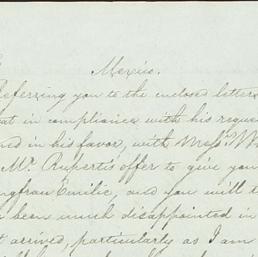 Mexico.
Referring you to the enclosed letters
that in compliance with his reque
ned in his favor, with Messrs. W
Mr. Rupertis offer to give you
ngfrau Emilie, and you will t
been much disappointed in
t arrived, particularly as I am